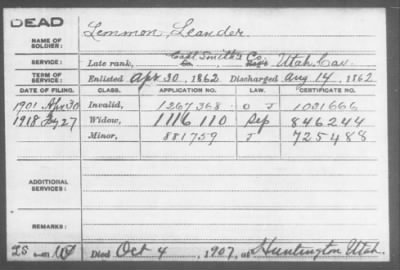 DEAD
NAME OF SOLDIER: Lemmon, Leander
SERVICE: Late rank, Capt Smith's Co. Utah Cav.
TERM OF SERVICE: Enlisted Apr 30, 1862 Discharged Aug 14, 1862
DATE OF FILING. CLASS. APPLICATION NO. LAW. CERTIFICATE NO.
1901 Apr 30 Invalid, 1267368 J 1031666
1918 27 Widow, 1116110 Sep 846244
Minor, 881759 J 725488
ADDITIONAL SERVICES:
REMARKS:
Died Oct 4, 1907, at Huntington Utah.